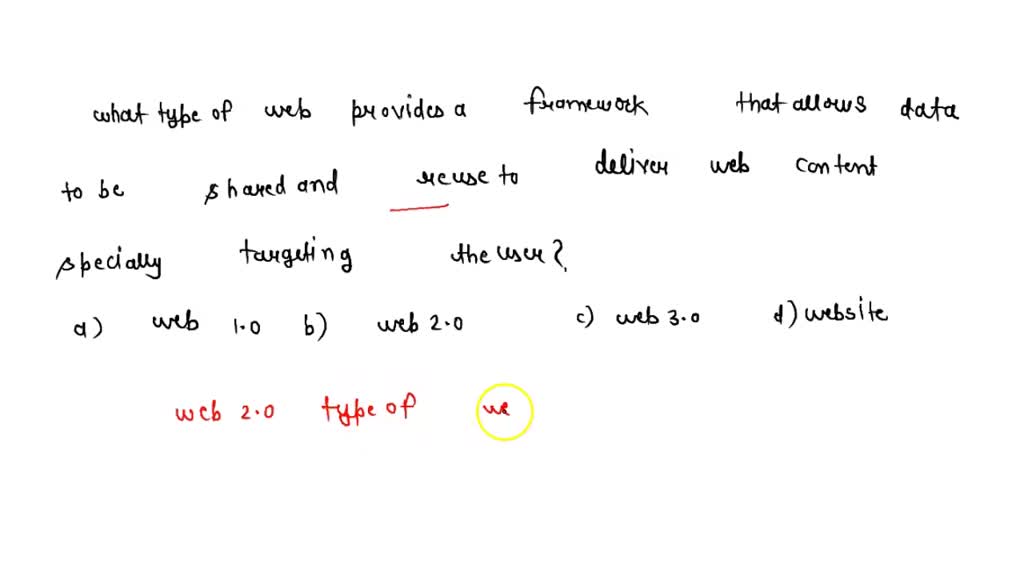 what type of web provides a framework that allows data
to be shared and reuse to deliver web content
specially targeting the user?
a) web 1.0 b) web 2.0 c) web 3.0 d) website
web 2.0 type of we